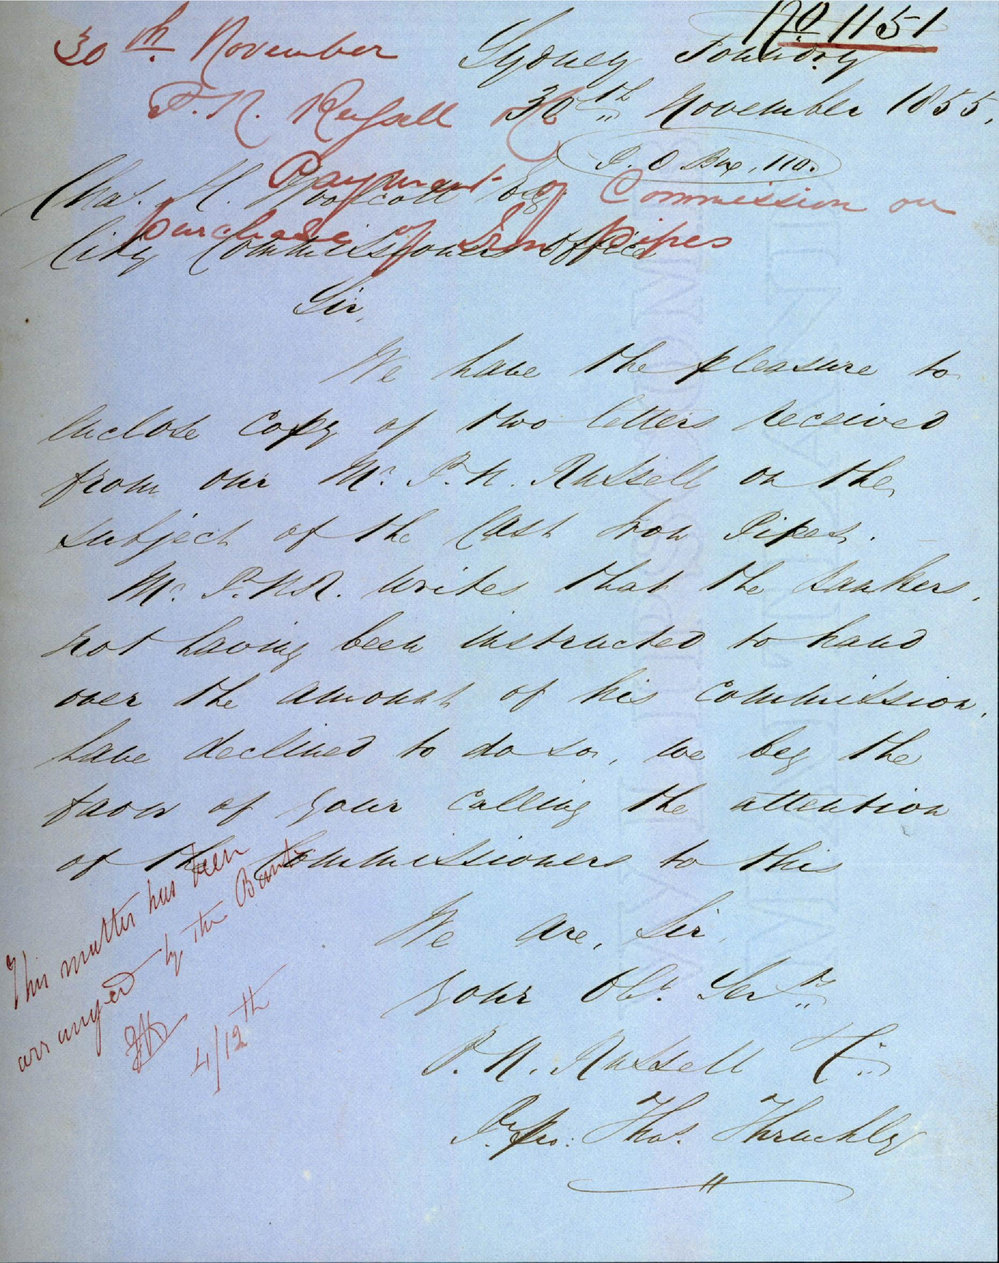 No 1151
30th November
P. N. Russell & Co
Payment of Commission on
purchase of Iron Pipes
Sydney Foundry
30th November 1855.
P. O Box, 110.
Chas. H. Woolcott Esq
City Commissioners Office
Sir,
We have the pleasure to
enclose copy of two letters received
from our Mr. P. N. Russell on the
subject of the Cast Iron Pipes.
Mr. P. N. R. writes that the Bankers,
not having been instructed to hand
over the amount of his commission,
have declined to do so, we beg the
favor of your calling the attention
of the Commissioners to this
We are, Sir,
Your Obt. Servts
P. N. Russell & Co
Per pro: Thos.
This matter has been
arranged by the Bank
4/12th